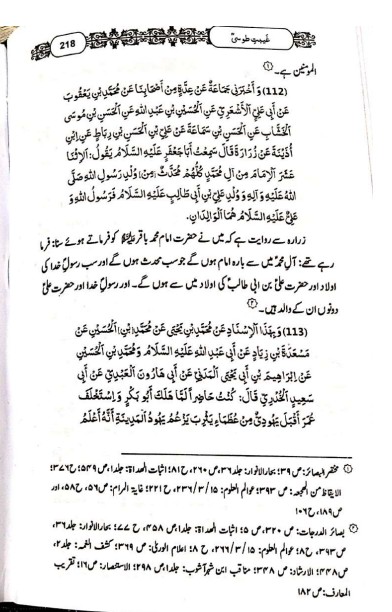 218
غیبت طوسیؒ
المومنین ہے۔①
(112) وَ أَخْبَرَنِي جَمَاعَةٌ عَنْ عِدَّةٍ مِنْ أَصْحَابِنَا عَنْ مُحَمَّدِ بْنِ يَعْقُوبَ
عَنْ أَبِي عَلِيٍّ الْأَشْعَرِيِّ عَنِ الْحُسَيْنِ بْنِ عَبْدِ اللهِ عَنِ الْحَسَنِ بْنِ مُوسَى
الْخَشَّابِ عَنِ الْحَسَنِ بْنِ سَمَاعَةَ عَنْ عَلِيِّ بْنِ الْحَسَنِ بْنِ رِبَاطٍ عَنِ ابْنِ
أُذَيْنَةَ عَنْ زُرَارَةَ قَالَ سَمِعْتُ أَبَا جَعْفَرٍ عَلَيْهِ السَّلَامُ يَقُولُ: الِاثْنَا
عَشَرَ الْإِمَامَ مِنْ آلِ مُحَمَّدٍ كُلُّهُمْ مُحَدَّثٌ [مِنْ] وُلْدِ رَسُولِ اللهِ صَلَّى
اللهُ عَلَيْهِ وَ آلِهِ وَ وُلْدِ عَلِيِّ بْنِ أَبِي طَالِبٍ عَلَيْهِ السَّلَامُ فَرَسُولُ اللهِ وَ
عَلِيٌّ عَلَيْهِ السَّلَامُ هُمَا الْوَالِدَانِ.
زرارہ سے روایت ہے کہ میں نے حضرت امام محمد باقر علیہ السلام کو فرماتے ہوئے سنا: فرما
رہے تھے: آل محمدؐ میں سے بارہ امام ہوں گے جو سب محدث ہوں گے اور سب رسولؐ خدا کی
اولاد اور حضرت علیؑ بن ابی طالبؑ کی اولاد میں سے ہوں گے۔ اور رسولؐ خدا اور حضرت علیؑ
دونوں ان کے والد ہیں۔②
(113) وَ بِهَذَا الْإِسْنَادِ عَنْ مُحَمَّدِ بْنِ يَحْيَى عَنْ مُحَمَّدِ [بْنِ] الْحُسَيْنِ عَنْ
مَسْعَدَةَ بْنِ زِيَادٍ عَنْ أَبِي عَبْدِ اللهِ عَلَيْهِ السَّلَامُ وَ مُحَمَّدِ بْنِ الْحُسَيْنِ
عَنْ إِبْرَاهِيمَ بْنِ أَبِي يَحْيَى الْمَدَنِيِّ عَنْ أَبِي هَارُونَ الْعَبْدِيِّ عَنْ أَبِي
سَعِيدٍ الْخُدْرِيِّ قَالَ: كُنْتُ حَاضِراً لَمَّا هَلَكَ أَبُو بَكْرٍ وَ اسْتَخْلَفَ
عُمَرَ أَقْبَلَ يَهُودِيٌّ مِنْ عُظَمَاءِ يَثْرِبَ يَزْعُمُ يَهُودُ الْمَدِينَةِ أَنَّهُ أَعْلَمُ
① مختصر البصائر: ص ۳۹؛ بحار الانوار: جلد ۳۶، ص ۲۶۰، ح ۸۱؛ اثبات الھداۃ: جلد ا، ص ۵۴۹؛ ح ۳۷۶؛
الایقاظ من الھجعہ: ص ۳۹۳؛ عوالم العلوم: ۱۵/ ۳/ ۲۳۶، ح ۲۲۱؛ غایۃ المرام: ص ۵۶، ص ۵۸، اور
ص ۱۸۹، ح ۱۰۶
② بصائر الدرجات: ص ۳۲۰، ص ۵؛ اثبات الھداۃ: جلد ا، ص ۴۵۸، ح ۷۷؛ بحار الانوار: جلد ۳۶،
ص ۳۹۳، ح ۸؛ عوالم العلوم: ۱۵/ ۳/ ۲۶۶، ح ۸؛ اعلام الوریٰ: ص ۳۶۹؛ کشف الغمہ: جلد ۲،
ص ۴۴۸؛ الارشاد: ص ۳۴۸؛ مناقب ابن شہر آشوب: جلد ا، ص ۲۹۸؛ الاستنصار: ص ۱۶؛ تقریب
المعارف: ص ۱۸۲